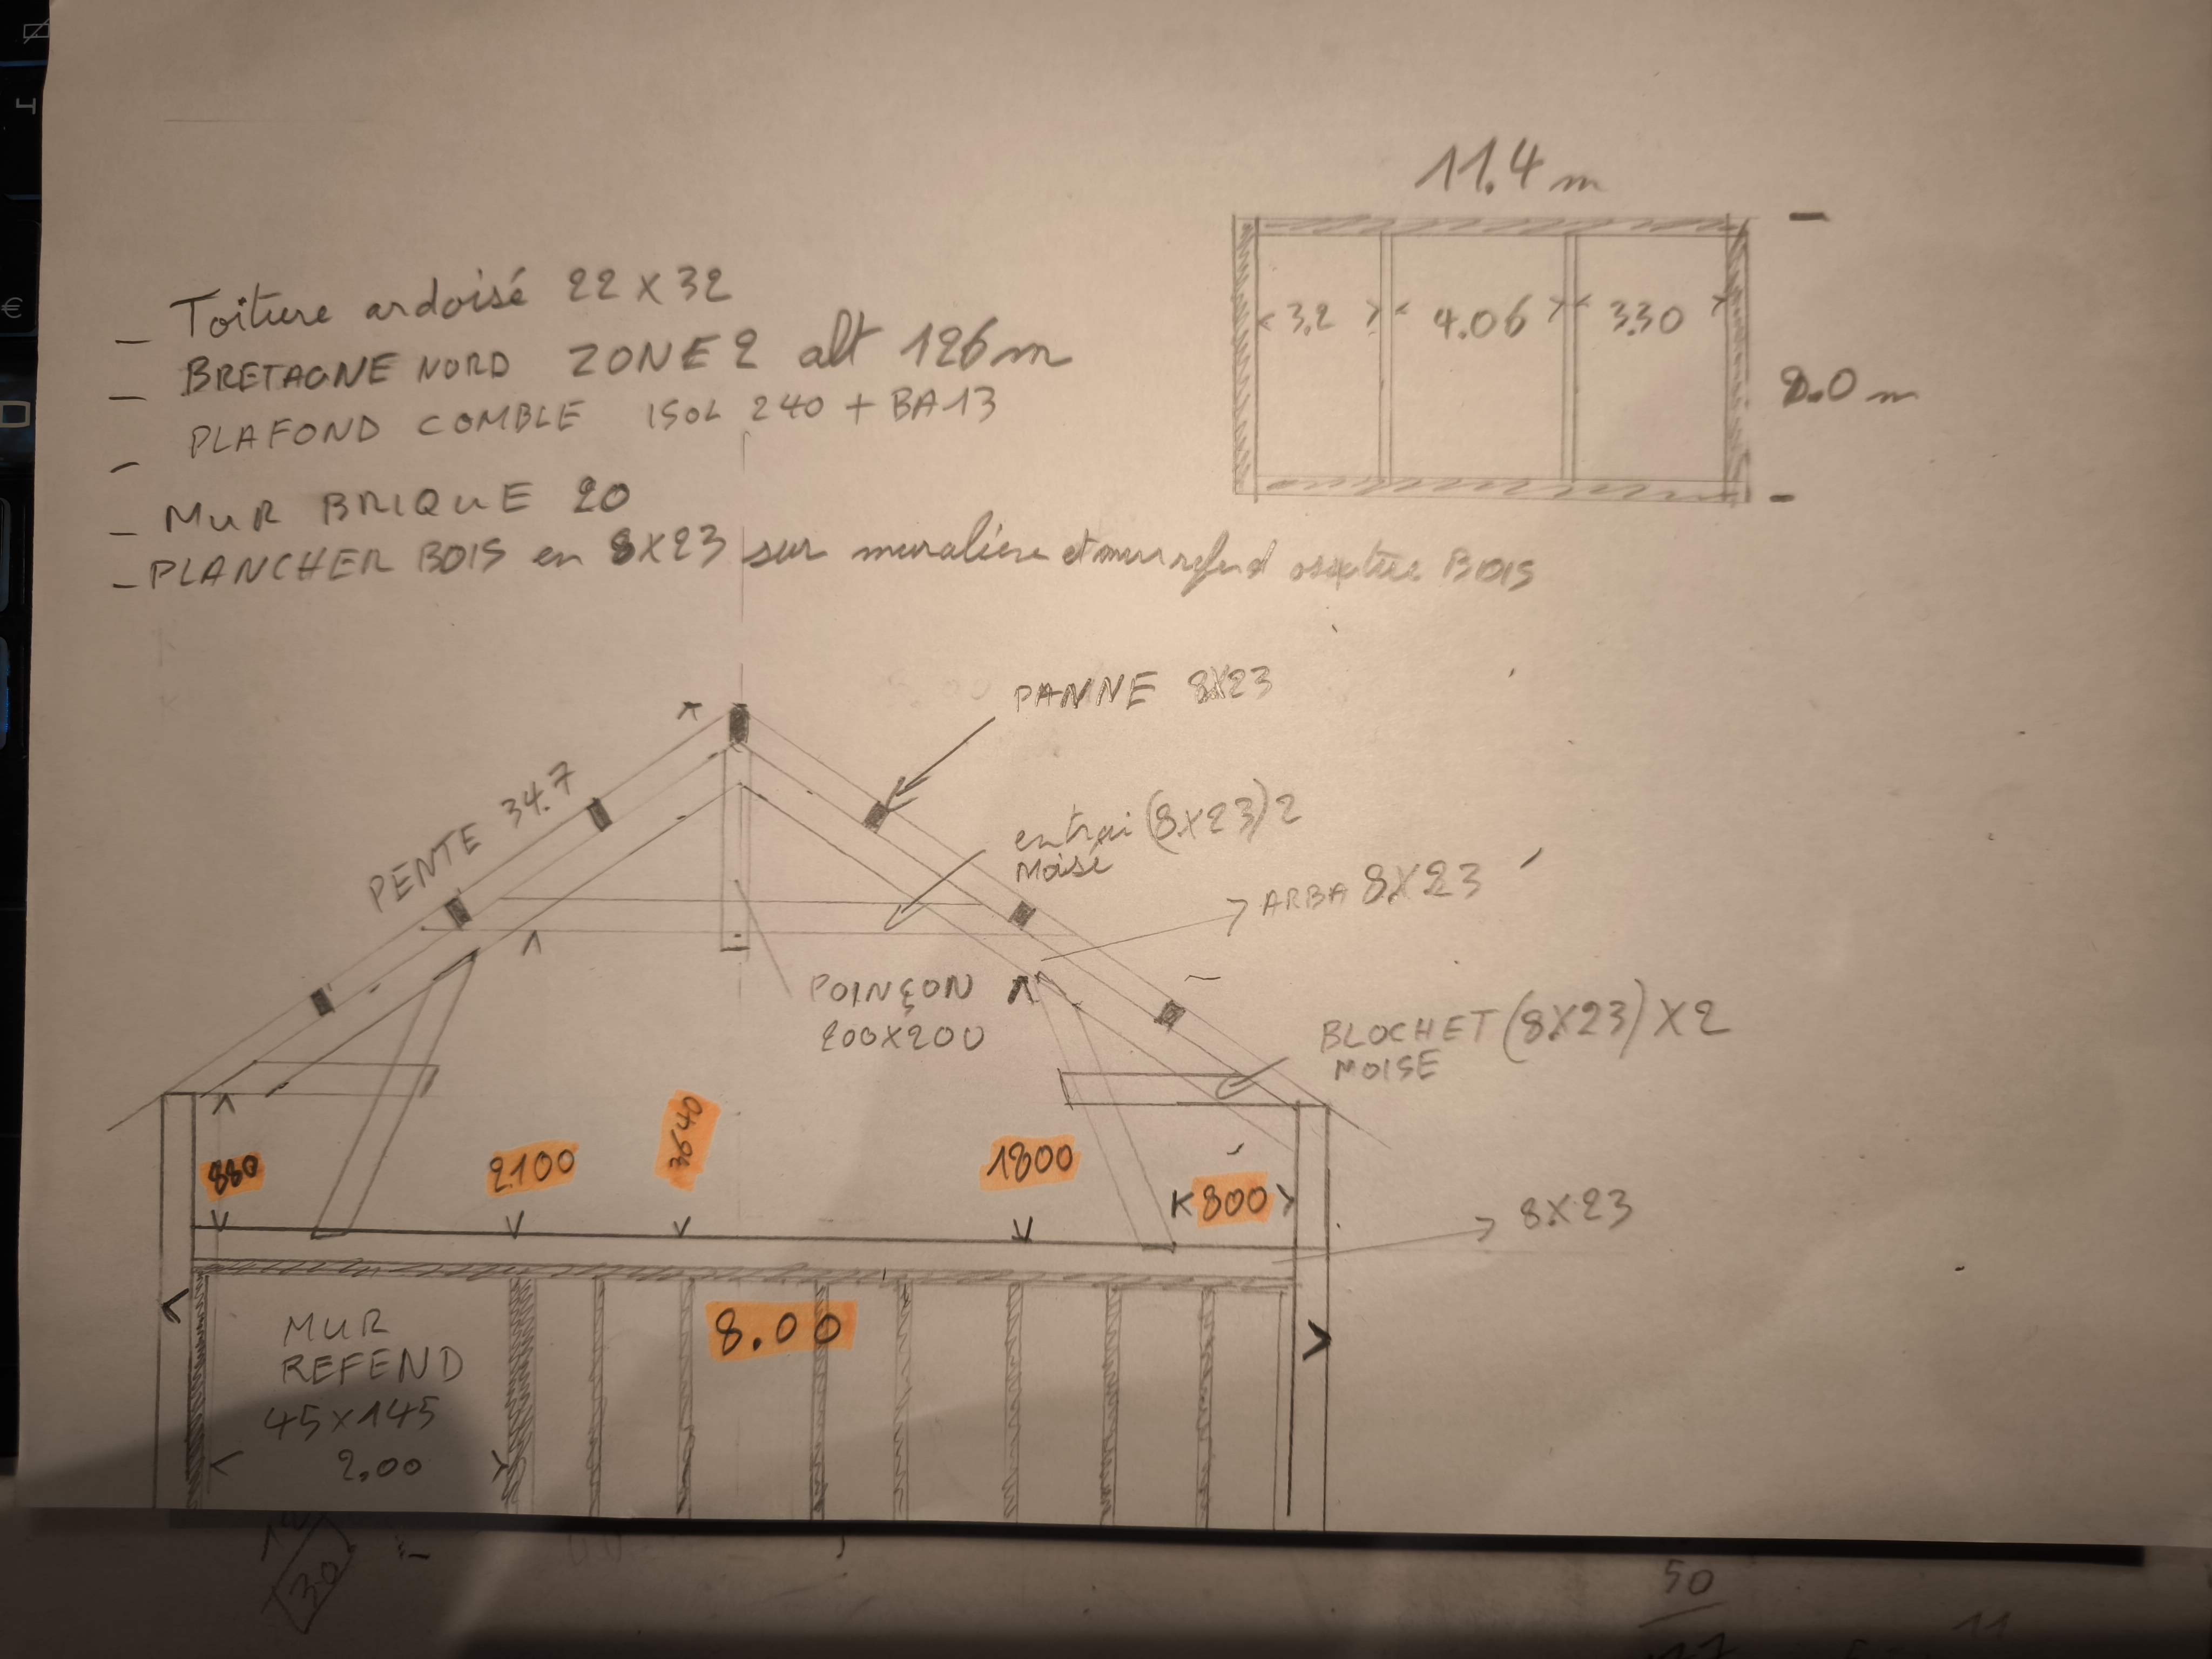 11.4 m
3.2
4.06
3.30
8.0 m
— Toiture ardoisé 22 x 32
— BRETAGNE NORD ZONE 2 alt 126m
— PLAFOND COMBLE ISOL 240 + BA13
— MUR BRIQUE 20
— PLANCHER BOIS en 8X23 sur muralière et mur refend BOIS
PANNE 8X23
PENTE 34.7
entrai (8X23)2
Moisé
ARBA 8X23
POINÇON
200X200
BLOCHET (8X23) X 2
MOISE
880
2100
3640
1800
800
8X23
8.00
MUR
REFEND
45x145
2.00
30
50
11
4
€